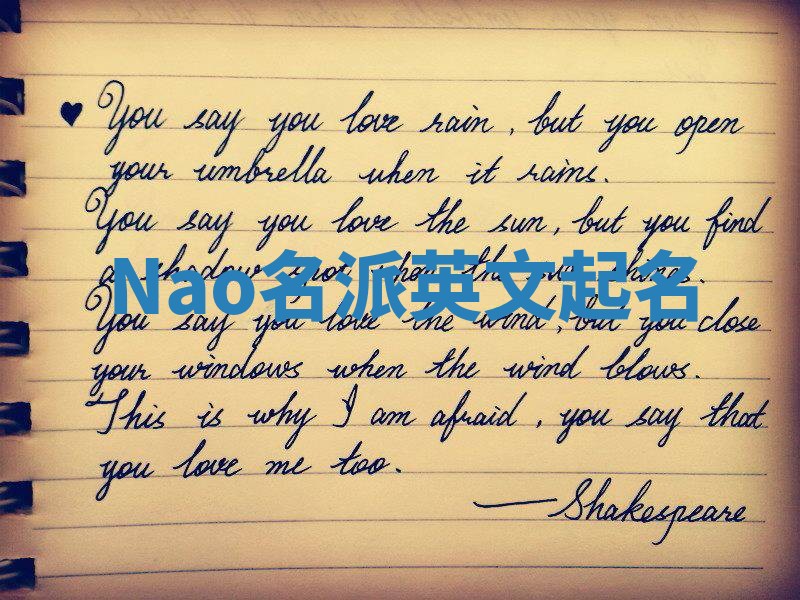 You say you love rain, but you open
your umbrella when it rains.
You say you love the sun, but you find
a shadow spot when the sun shines.
Nao名派英文起名
You say you love the wind, but you close
your windows when the wind blows.
This is why I am afraid, you say that
you love me too.
—Shakespeare